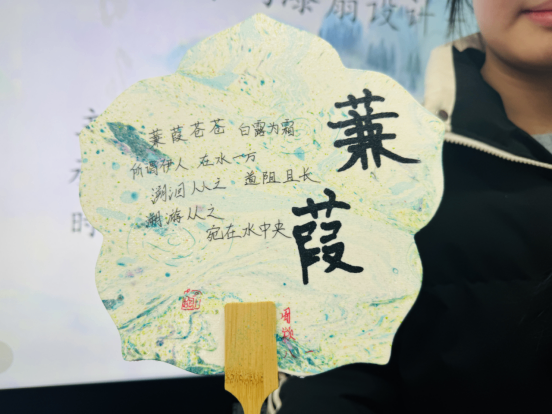 漆扇设计
蒹葭
蒹葭苍苍 白露为霜
所谓伊人 在水一方
溯洄从之 道阻且长
溯游从之
宛在水中央
时